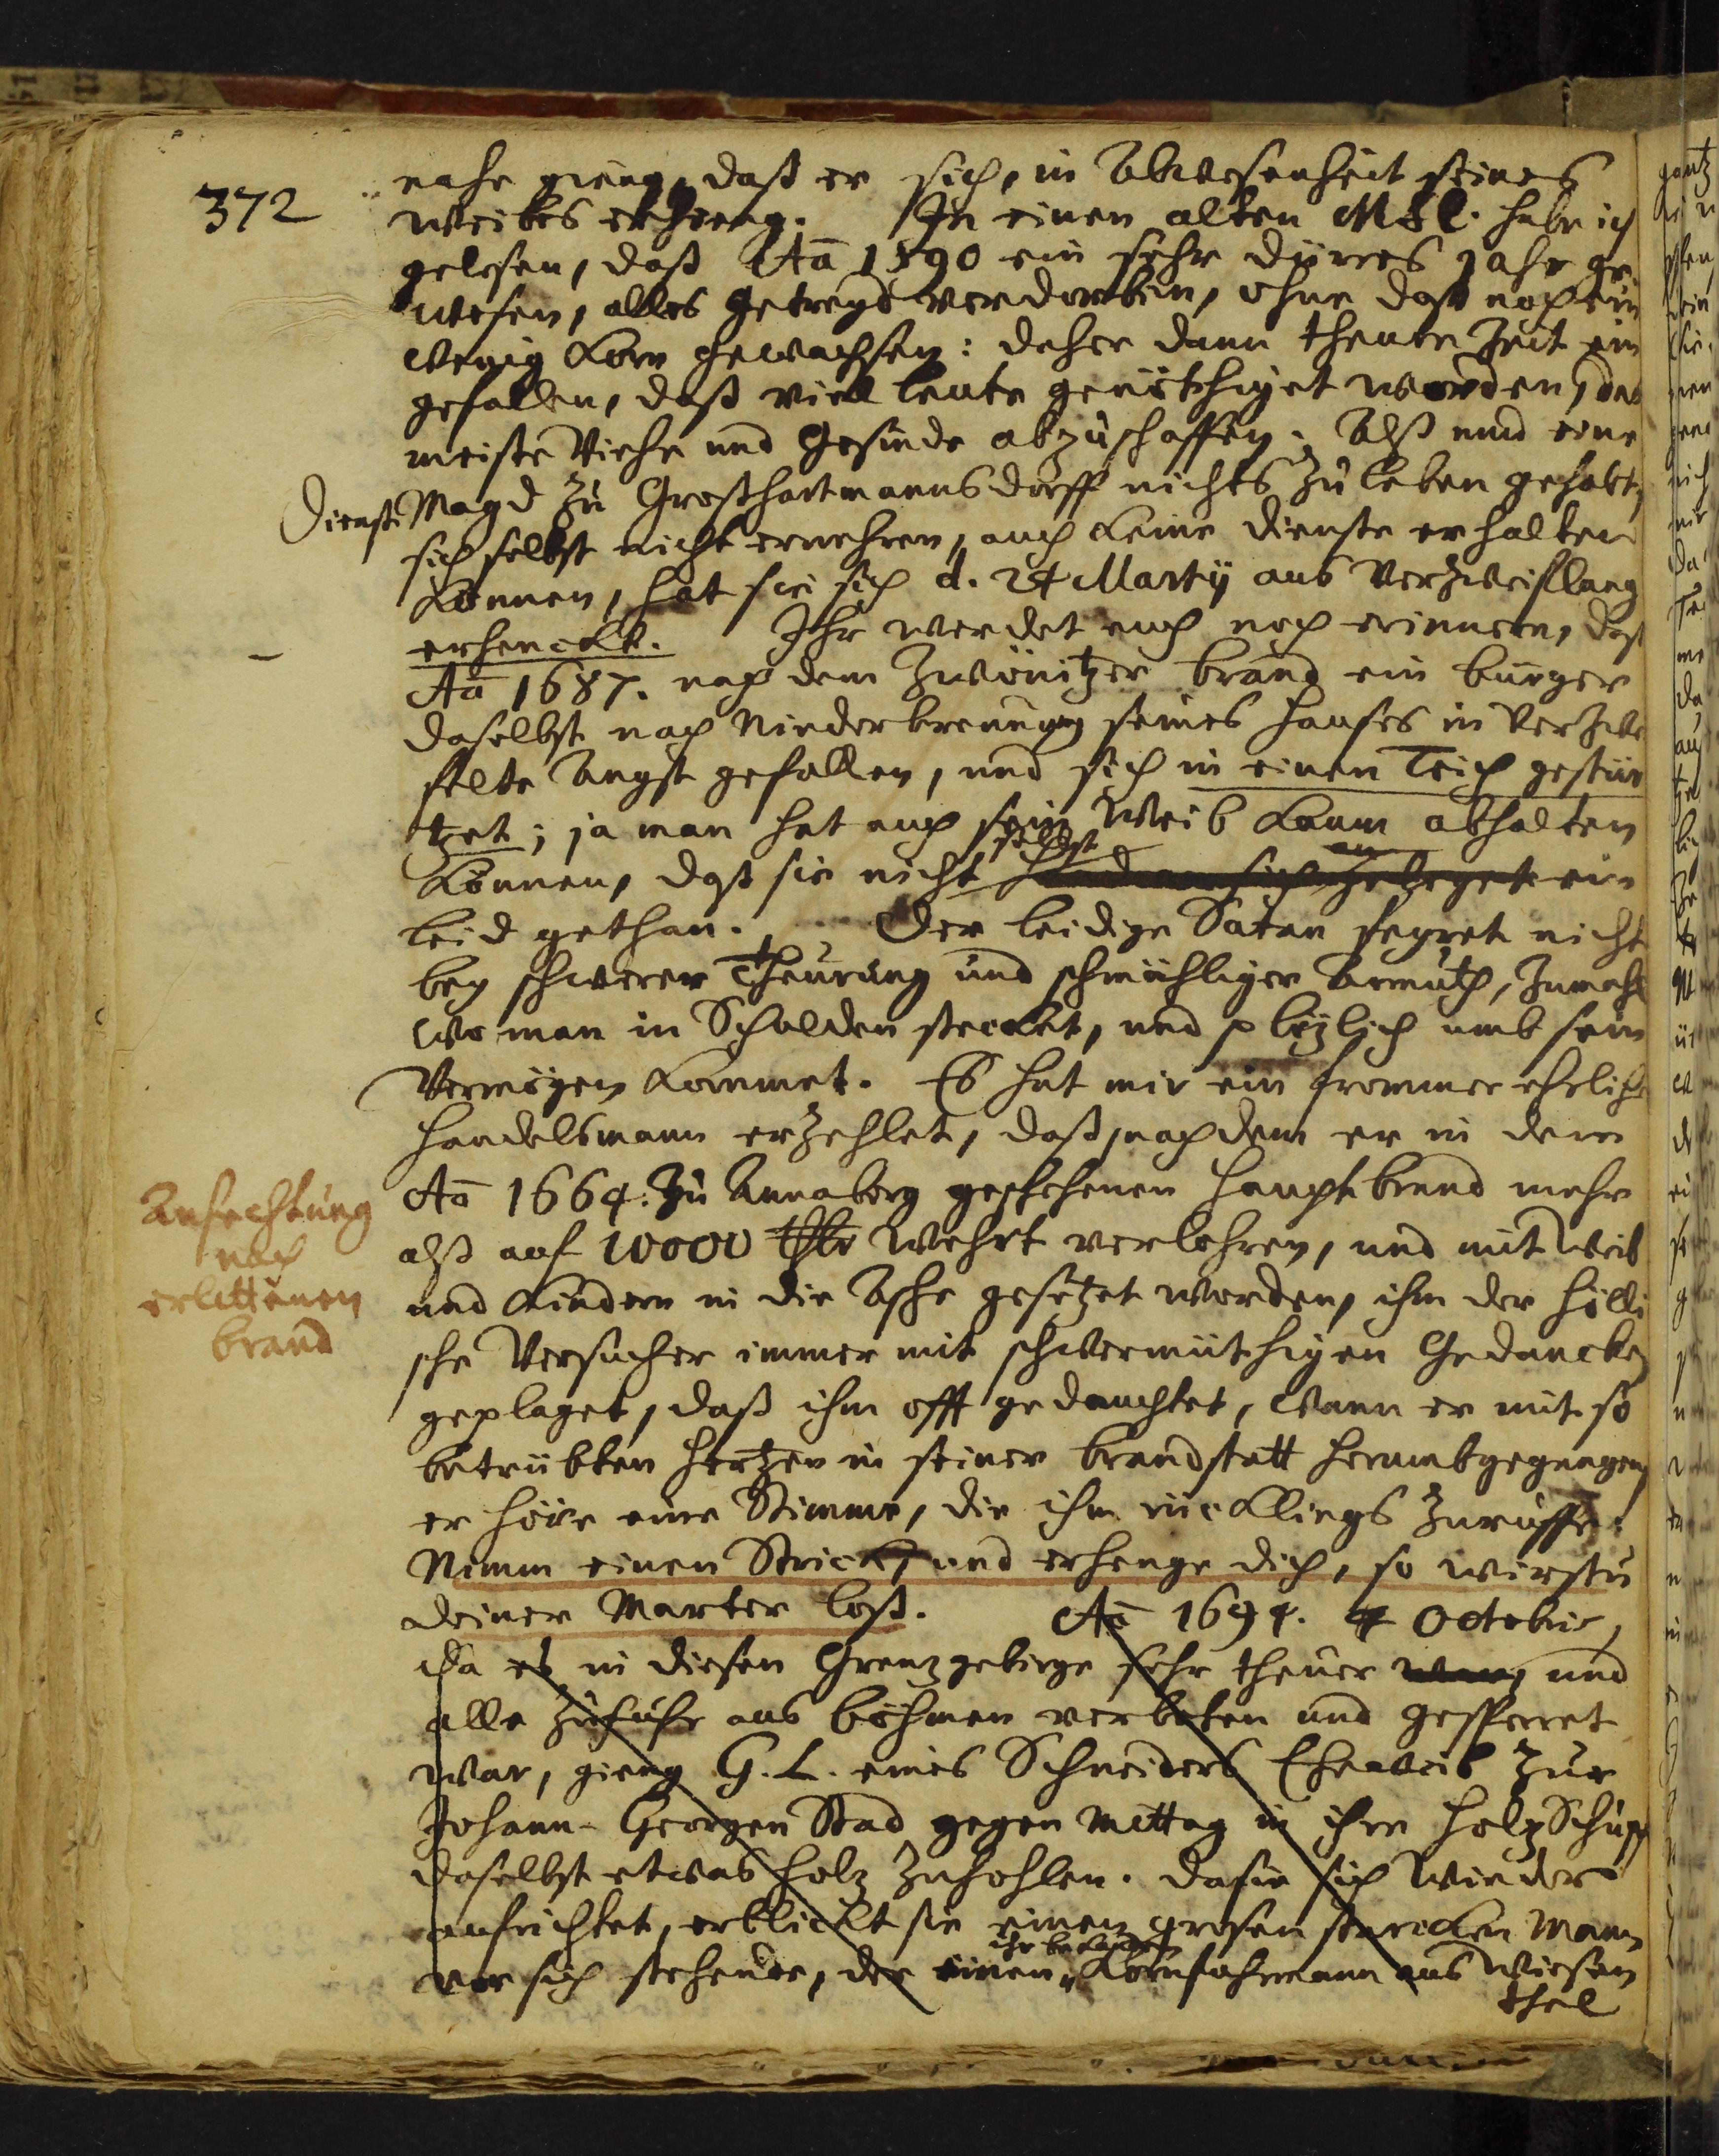 372
nahe gieng, daß er sich, in Abwesenheit seines
Weibes erhieng. In einen alten MSC. habe ich
gelesen, daß Aō 1590 ein sehr dürres Jahr ge
wesen, alles Getreyd verdorben, ohne daß noch ein
wenig Korn gewachsen: daher dann theure Zeit ein
gefallen, daß viel leute genöthiget worden, das
meiste Viehe und Gesinde abzuschaffen. Alß nund eine
Dienst Magd zu Groshartmannsdorff nichts zu leben gehabt,
sich selbst nicht ernehren, auch keine dienste erhalten
können, hat sie sich d. 24 Martij aus Verzweiflung
erhenckt. Ihr werdet euch noch erinnern, daß
Aō 1687. nach dem Zwönitzer brand ein burger
daselbst nach Niederbrennung seines Hauses in Verzwei
felte Angst gefallen, und sich in einen Teich gestür
tzet; ja man hat auch sein Weib kaum abhalten
selbst an
können, daß sie nicht Hand an sich geleget ein
leid gethan. Der leidige Satan feyret nicht
bey schwerer Theurung und schmähliger Armuth, zumahl
wo man in Schulden stecket, und plötzlich umb sein
Vermögen kommet. Es hat mir ein frommer ehrlicher
Handelsmann erzehlet, daß, nachdem er in dem
Aō 1664. zu Annaberg geschehenen Hauptbrand mehr
alß auf 10000 thlr Wehrt verlohren, und mit Weib
Anfechtung
nach
erlittenen
brand
und Kindern in die Asche gesetzet worden, ihm der hölli
sche Versucher immer mit schwermüthigen Gedancken
geplaget, daß ihm offt gedauchtet, wann er mit so
betrübten Hertzen in seiner brandstatt herumbgegangen,
er höre eine Stimme, die ihm rücklings zuruffe:
Nimm einen Strick, und erhenge dich, so wirstu
deiner Marter loß. Aō 1694. 4 Octobris,
da es in diesen Grenzgebirge sehr theuer war, und
alle Zufuhr aus böhmen verboten und gesperret
war, gieng G. L. eines Schneiders Eheweib zur
Johann-Georgen Stad gegen Mittag in ihre Holz Schupp
daselbst etwas Holz zuhohlen. da sie sich wieder
aufrichtet, erblickt sie einen grosen starcken Mann
ihr bekandten
vor sich stehende, der einen Kornfuhrmann aus Wiesen
thal